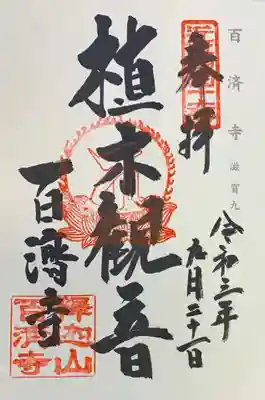 百済寺 滋賀九
奉拝
令和三年
九月二十一日
植木観音
百済寺
釋迦山
百濟寺